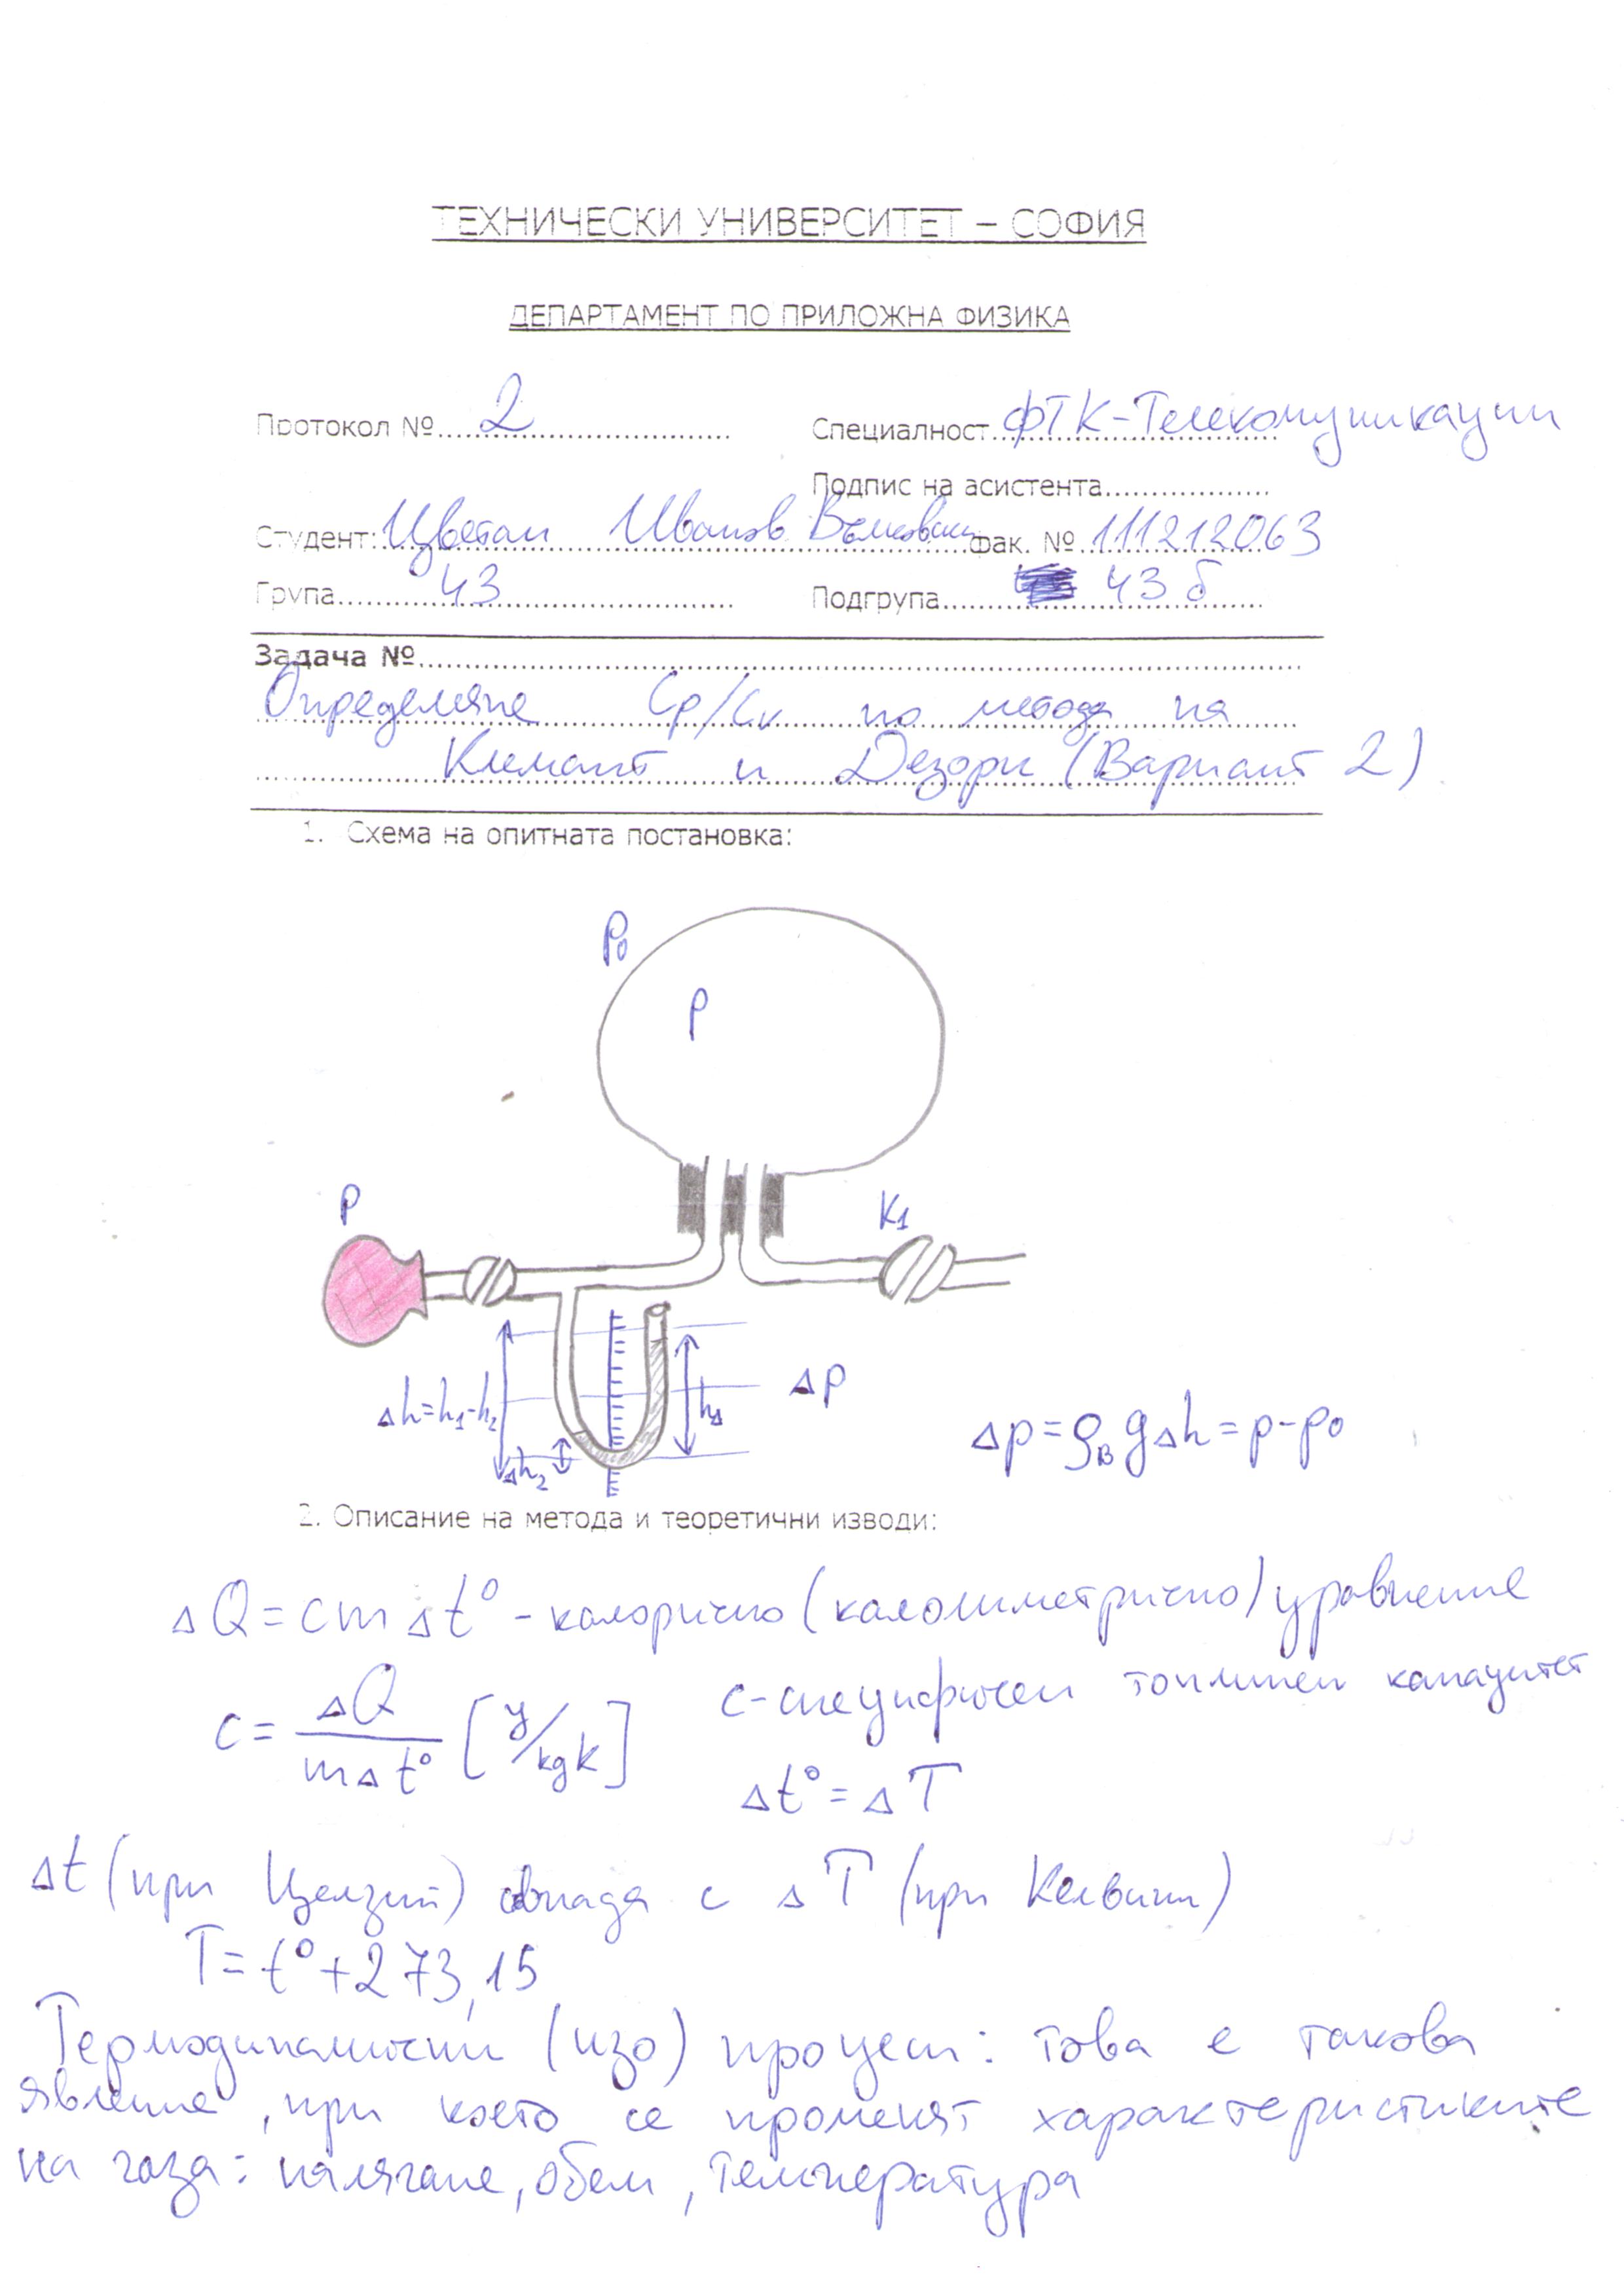 ТЕХНИЧЕСКИ УНИВЕРСИТЕТ – СОФИЯ
ДЕПАРТАМЕНТ ПО ПРИЛОЖНА ФИЗИКА
Протокол № 2 Специалност ФТК-Телекомуникации
Подпис на асистента
Студент: Цветан Иванов фак. № 111212063
Група 43 Подгрупа 43 б
Задача №
Определяне Cp/Cv по метода на
Климант и Дезорн (Вариант 2)
1. Схема на опитната постановка:
P₀
P
P K₁
Δh=h₁-h₂ h₁ Δp
Δh₂
Δp=ρ_в gΔh=p-p₀
2. Описание на метода и теоретични изводи:
ΔQ=cmΔt° - калорично (калолиметрично) уравнение
c=ΔQ/mΔt° [y/kgk] c-специфичен топлинен капацитет
Δt°=ΔT
Δt (при Целзий) съвпада с ΔT (при Келвин)
T=t°+273,15
Термодинамични (изо) процеси: това е такова
явление, при което се променят характеристиките
на газа: налягане, обем, температура